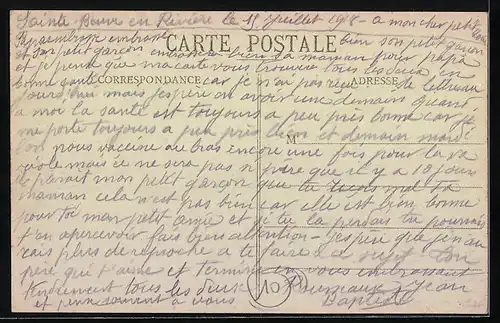 Sainte Beuve en Rivière le 15 Juillet 1918 - a mon cher petit
Papa embrasse bien son petit garçon
et son petit garçon embrasser bien sa maman pour papa
CARTE POSTALE
et je pense que ma carte vous trouvera tous les deux en
bonne santé car je n'ai pas reçu de lettre
CORRESPONDANCE
ADRESSE
aujourd'hui mais j'espère en avoir une demain quant
a moi la santé est toujours a peu près bonne car je
me porte toujours a peu près bien et demain mardi
M
on nous vaccine au bras encore une fois pour la
mais ce ne sera pas si pire que il y a 18 jours
il parait mon petit garçon que tu ta
maman cela n'est pas bien car elle est bien bonne
pour toi mon petit ange et si tu la perdais tu pourrais
t'en apercevoir fais bien attention j'espère que je n'au
rais plus de reproche a te faire a ce sujet ton
père qui t'aime et termine en vous embrassant
tendrement tous les deux
et pense souvent a vous
10
Jean
Baptiste